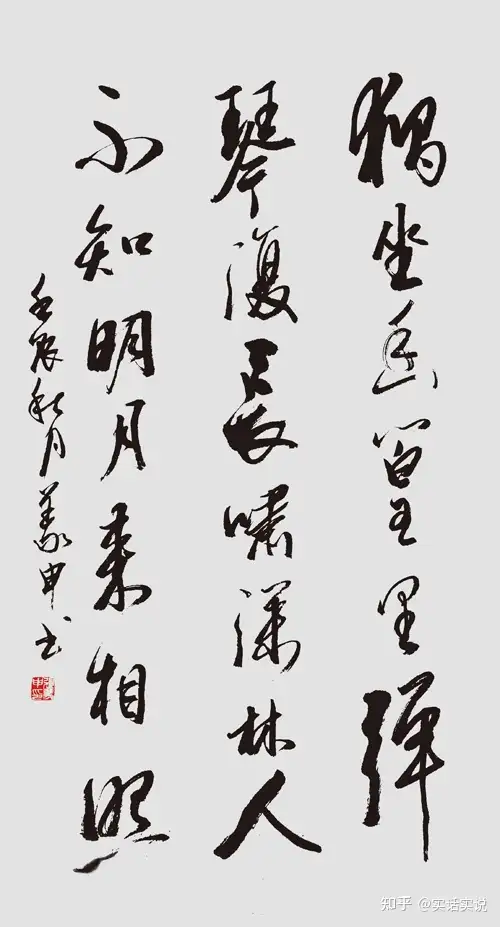 獨坐幽篁里彈
琴復長嘯深林人
不知明月來相照
壬辰秋月義申书
知乎 @实话实说